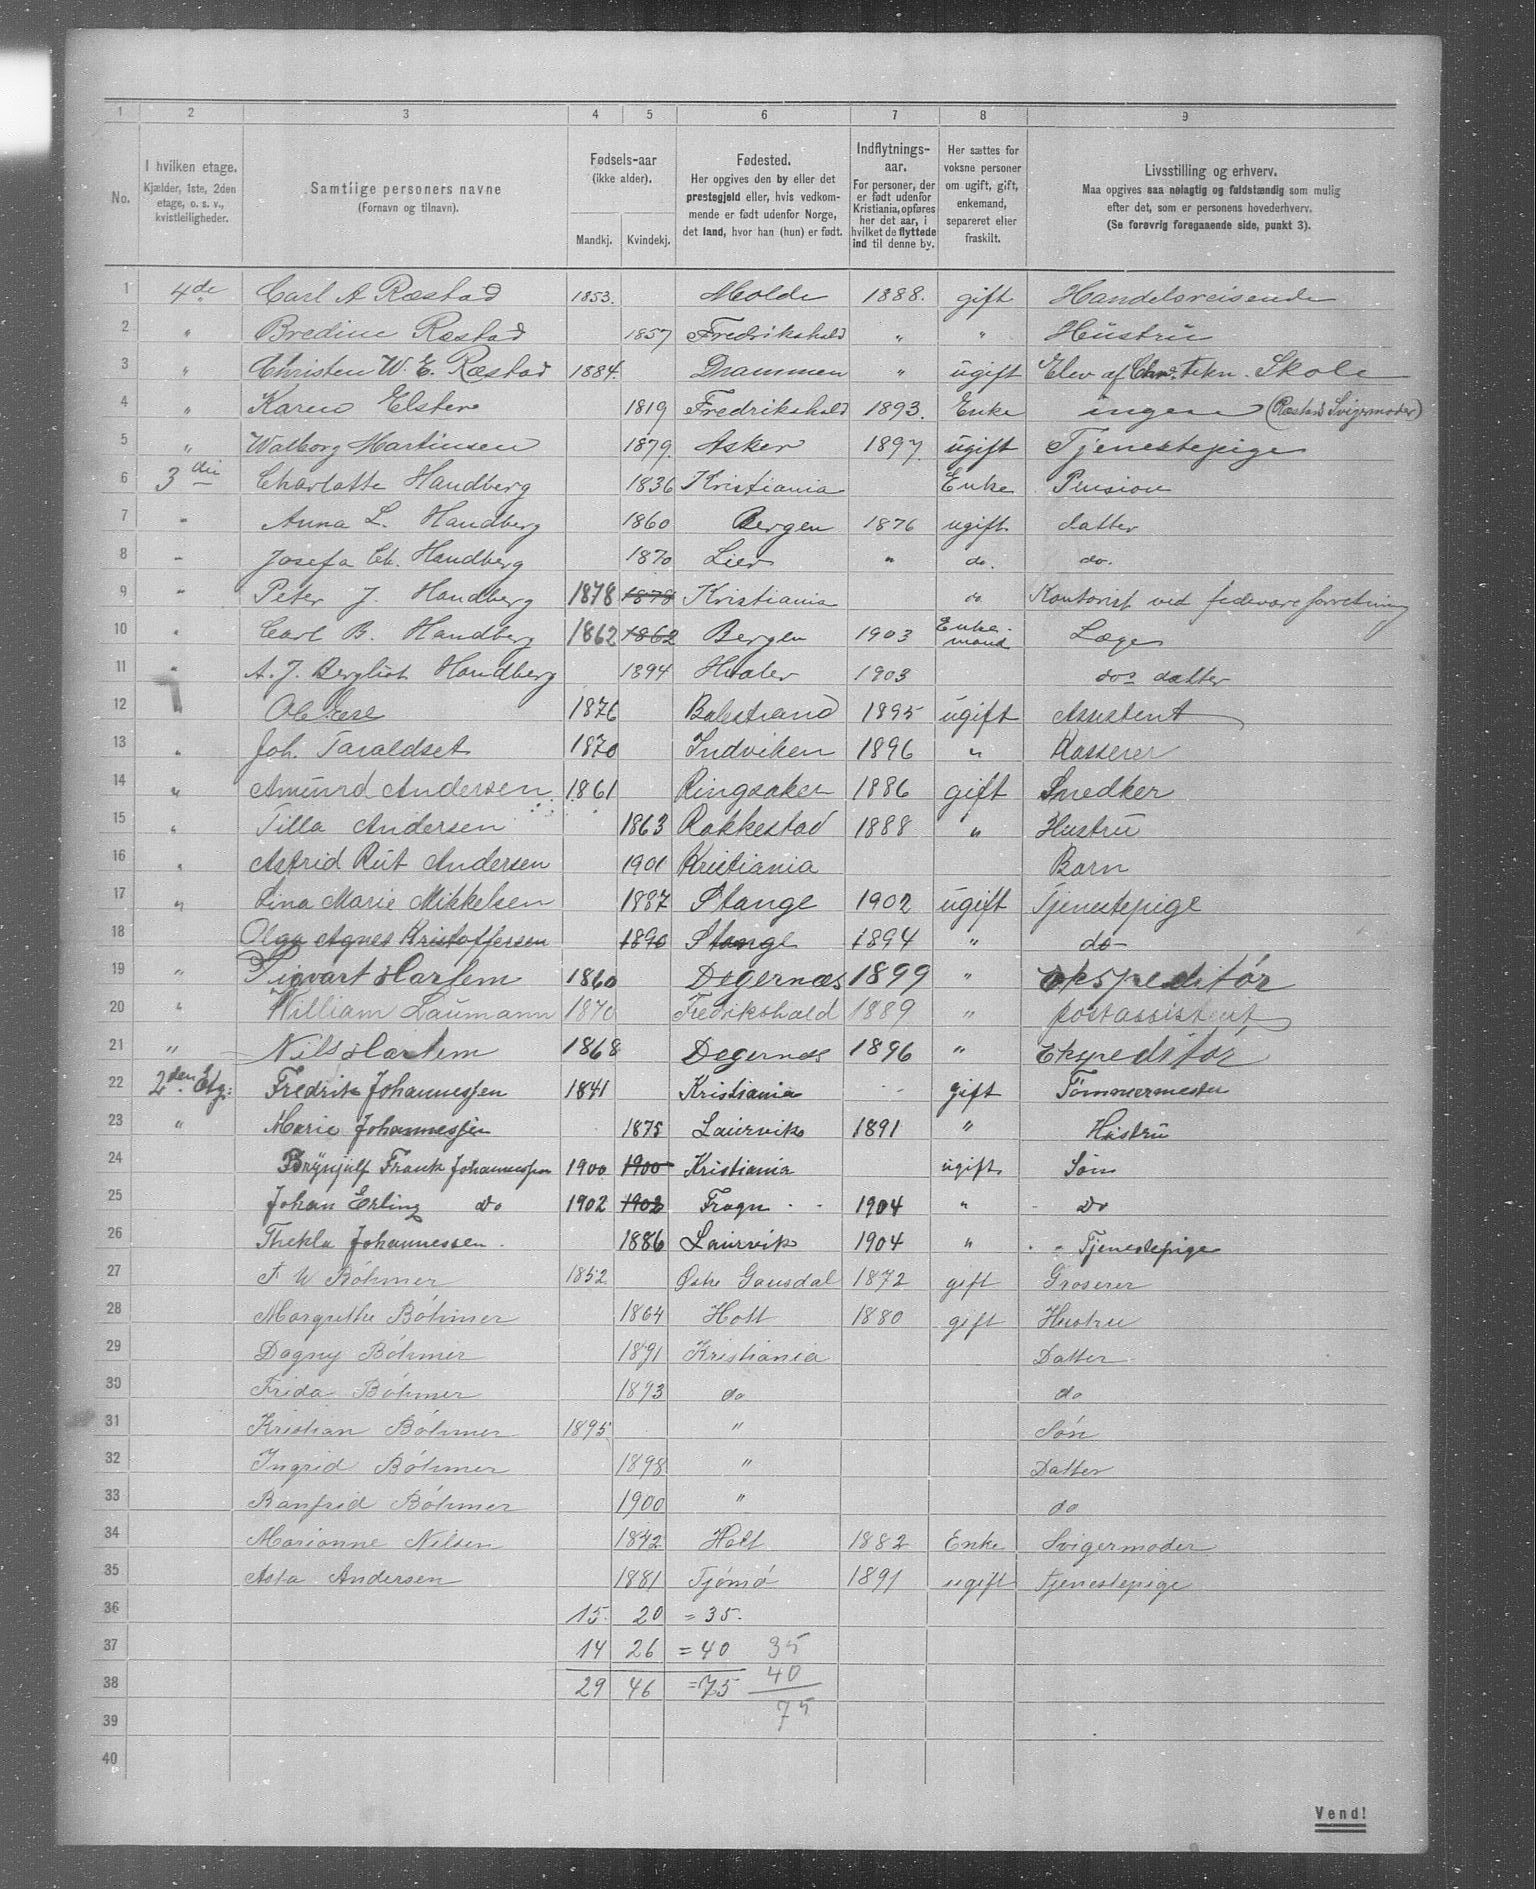 1 2 3 4 5 6 7 8 9
No. I hvilken etage. Kjælder, 1ste, 2den etage, o. s. v., kvistleiligheder. Samtlige personers navne (Fornavn og tilnavn). Fødsels-aar (ikke alder). Mandkj. Kvindekj. Fødested. Her opgives den by eller det prestegjeld eller, hvis vedkommende er født udenfor Norge, det land, hvor han (hun) er født. Indflytnings-aar. For personer, der er født udenfor Kristiania, opføres her det aar, i hvilket de flyttede ind til denne by. Her sættes for voksne personer om ugift, gift, enkemand, separeret eller fraskilt. Livsstilling og erhverv. Maa opgives saa nøiagtig og fuldstændig som mulig efter det, som er personens hovederhverv. (Se forøvrig foregaaende side, punkt 3).
1 4de Carl A Ræstad 1853. Molde 1888. gift Handelsreisende
2 " Bredine Ræstad 1857 Fredrikshald " " Hustru
3 " Christen W. E. Ræstad 1884. Drammen " ugift Elev af Chra. tekn. Skole
4 " Karen Elster 1819 Fredrikshald 1893. Enke ingen (Ræstad Svigermoder)
5 " Walborg Martinsen 1879. Asker 1897. ugift Tjenestepige
6 3die Charlotte Handberg 1836 Kristiania Enke Pension
7 " Anna L. Handberg 1860 Bergen 1876 ugift datter
8 " Josefa Ch. Handberg 1870 Lier " do. do.
9 " Peter J. Handberg 1878 1878 Kristiania do Kontorist ved fedevareforretning
10 " Carl B. Handberg 1862 1862 Bergen 1903 Enkemand Læge
11 " A. J. Bergliot Handberg 1894 Hvaler 1903 dos datter
12 " Ole 1876 Balestrand 1895 ugift Assistent
13 " Joh. Taraldset 1870 Indviken 1896 " Kasserer
14 " Amund Andersen 1861 Ringsaker 1886 gift Snedker
15 " Tilla Andersen 1863 Rakkestad 1888 " Hustru
16 " Astrid Rut Andersen 1901 Kristiania Barn
17 " Lina Marie Mikkelsen 1887 Stange 1902 ugift Tjenestepige
18 Olga Agnes Kristoffersen 1890 Stange 1894 " do
19 " Sigvart Harlem 1860 Degernæs 1899 " Ekspeditør
20 " William Laumann 1870 Fredrikshald 1889 " postassistent
21 " Nils Harlem 1868 Degernæs 1896 " Ekspeditør
22 2den Etg: Fredrik Johannessen 1841 Kristiania gift Tømmermester
23 " Marie Johannessen 1875 Laurvik 1891 " Hustru
24 Brynjulf Frank Johannessen 1900 1900 Kristiania ugift Søn
25 Johan Erling do 1902 1902 Frogn 1904 " do
26 Thekla Johannessen 1886 Laurvik 1904 " Tjenestepige
27 F W Böhmer 1852 Østre Gausdal 1872 gift Groserer
28 Margrethe Böhmer 1864 Holt 1880 gift Hustru
29 Dagny Böhmer 1891 Kristiania Datter
30 Frida Böhmer 1893 do do
31 Kristian Böhmer 1895 " Søn
32 Ingrid Böhmer 1898 " Datter
33 Ranfrid Böhmer 1900 " do
34 Marianne Nilsen 1842 Holt 1882 Enke Svigermoder
35 Asta Andersen 1881 Tjömö 1891 ugift Tjenestepige
36 15. 20 = 35.
37 14 26 = 40 35
38 29 46 = 75 40
39 75
40
Vend!